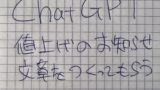 ChatGPT
値上げのお知らせ
文章をつくってもらう